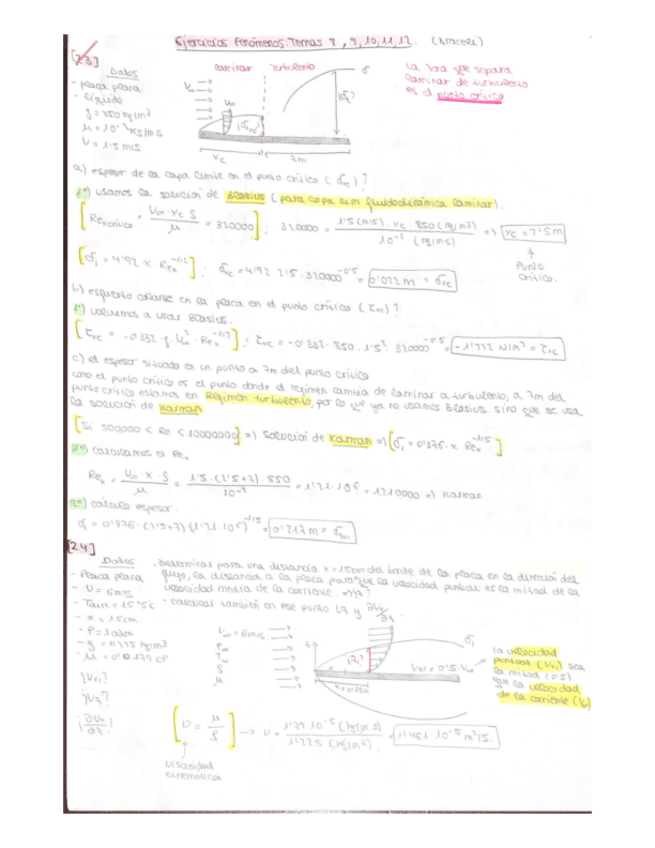 Ejercicios Fenómenos: Temas 8, 9, 10, 11, 12. (Araceli)
[23]
Datos
- placa plana
- líquido
ρ = 850 kg/m³
μ = 10⁻² kg/m s
U = 1'5 m/s
laminar turbulento
U∞
xc 7m
La línea que separa
laminar de turbulento
es el punto crítico
a) espesor de la capa límite en el punto crítico (δxc)?
1º) usamos la solución de Blasius (para capa lím fluidodinámica laminar).
[Re crítico = U∞ · xc · ρ / μ = 320000] ; 320000 = 1'5 (m/s) · xc · 850 (kg/m³) / 10⁻² (kg/m s) => xc = 2'5m
[δ₁ = 4'92 · x · Reₓ⁻¹/²] ; δxc = 4'92 · 2'5 · 320000⁻⁰'⁵ = 0'022m = δxc
Punto
crítico.
b) esfuerzo cortante en la placa en el punto crítico (τxc)?
1º) volvemos a usar Blasius.
[τxc = -0'332 · ρ · U∞² · Reₓ⁻¹/²] ; τxc = -0'332 · 850 · 1'5² · 320000⁻⁰'⁵ = -1'122 N/m² = τxc
c) el espesor situado en un punto a 7m del punto crítico
como el punto crítico es el punto donde el régimen cambia de laminar a turbulento, a 7m del
punto crítico estamos en Régimen turbulento, por lo que ya no usamos Blasius sino que se usa
la solución de Karman
[Si 500000 < Re < 10000000] => Solución de Karman => [δ₁ = 0'376 · x · Reₓ⁻¹/⁵]
1º) calculamos el Reₓ
Reₓ = U∞ · x · ρ / μ = 1'5 · (2'5+7) · 850 / 10⁻² = 1'21 · 10⁶ = 1210000 => Karman.
2º) cálculo espesor.
δ = 0'376 · (2'5+7) · (1'21 · 10⁶)⁻¹/⁵ = 0'217m = δ7m
[24]
Datos
. Determinar para una distancia x = 15cm del borde de la placa en la dirección del
flujo, la distancia a la placa para que la velocidad puntual es la mitad de la
velocidad media de la corriente.
- calcular también en ese punto
- Placa plana
- U = 6m/s
- Taire = 15'5ºc
- x = 15cm
- P = 1atm
- ρ = 1'225 kg/m³
- μ = 0'0179 cP
U∞ = 6m/s
x = 0'15m
Vx1 = 0'5 · U∞
la velocidad
puntual (Vx) sea
la mitad (0'5)
que la velocidad
de la corriente
[ν = μ / ρ] → ν = 1'79 · 10⁻⁵ (kg/m s) / 1'225 (kg/m³) = 1'461 · 10⁻⁵ m²/s.
viscosidad
cinemática